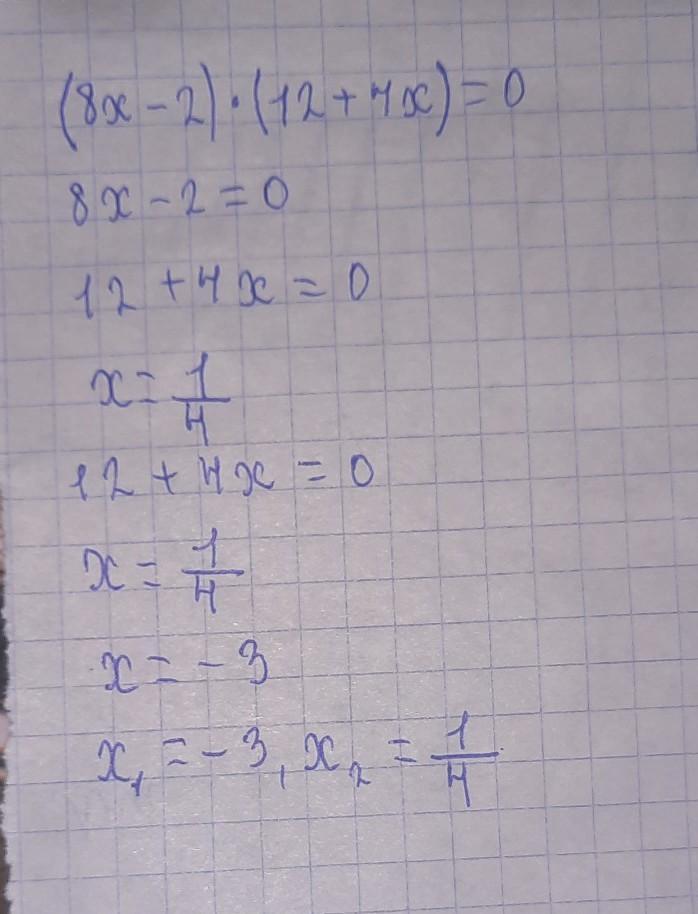 (8x-2)·(12+4x)=0
8x-2=0
12+4x=0
x=1/4
12+4x=0
x=1/4
x=-3
x₁=-3, x₂=1/4